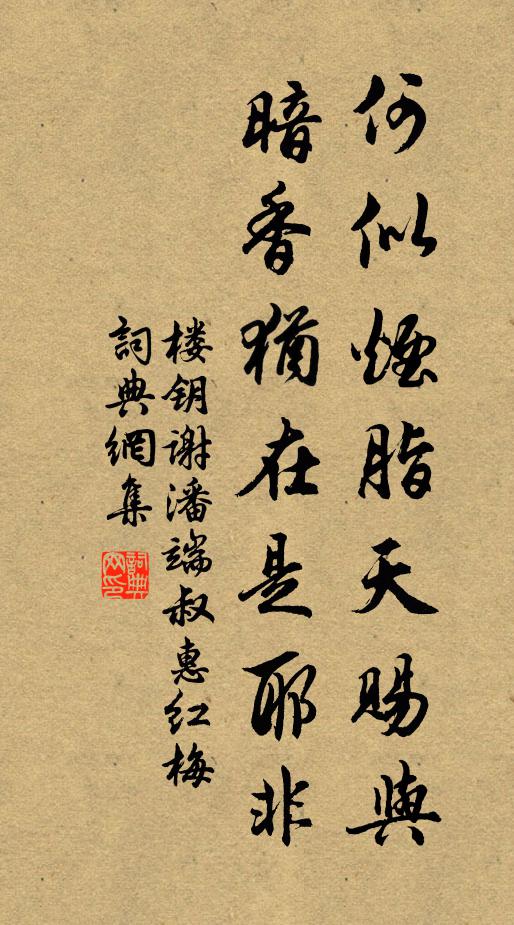 何似煙脂天賜與
暗香猶在是耶非
楼钥谢潘端叔惠红梅
詞典網集
詞典網印